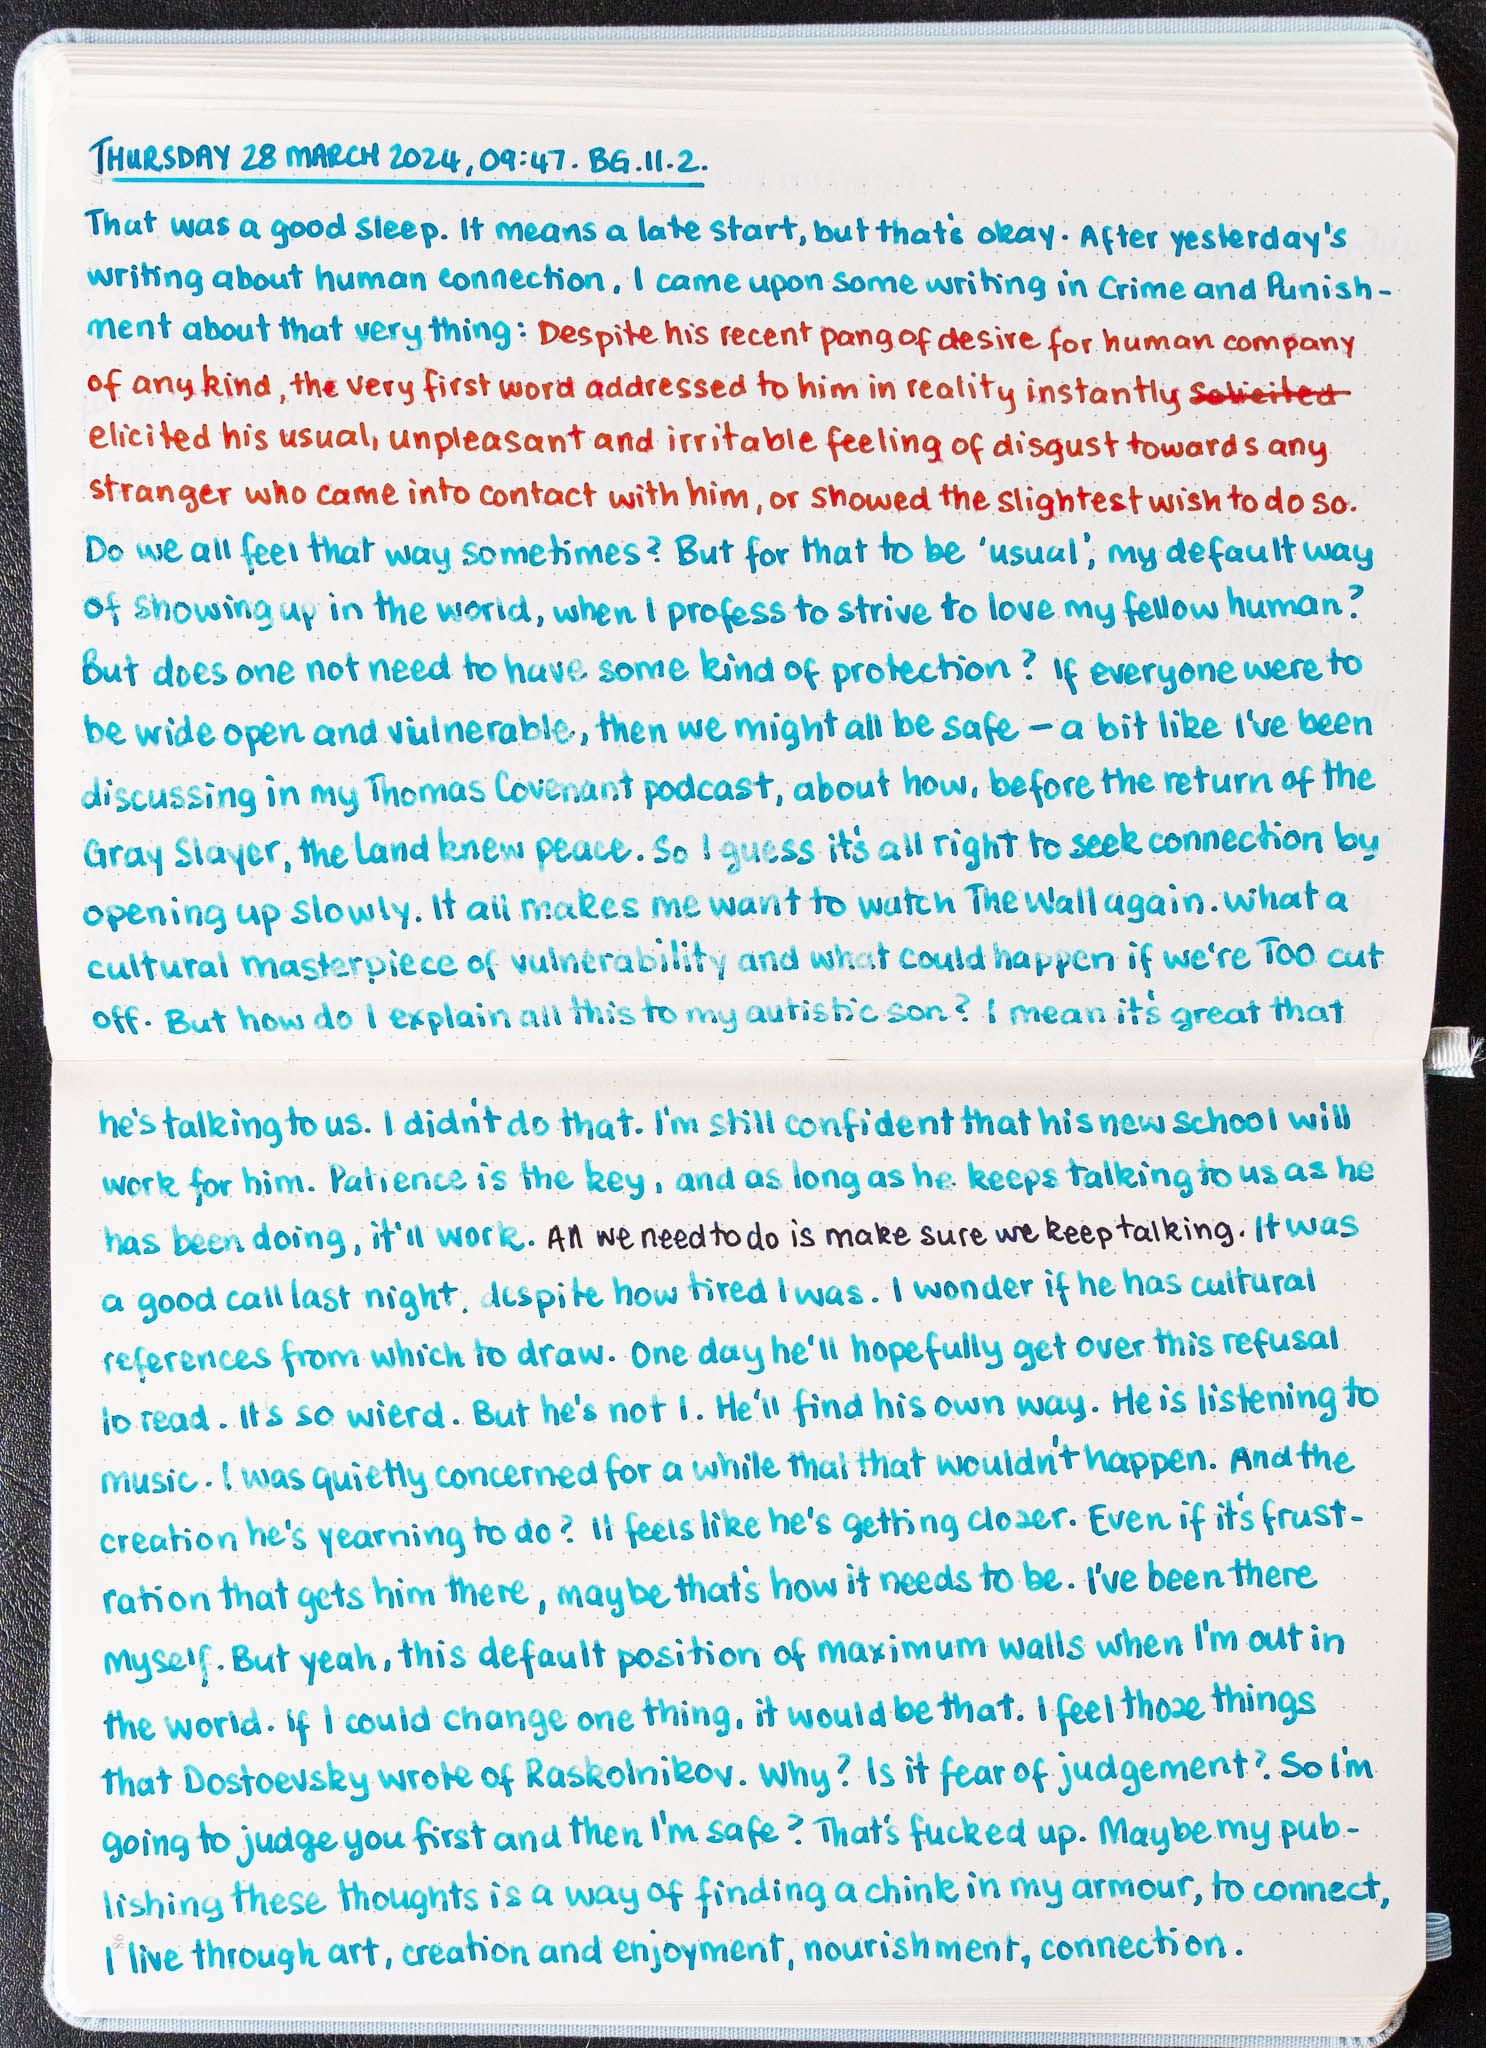 THURSDAY 28 MARCH 2024, 09:47. BG.11.2.
That was a good sleep. It means a late start, but that's okay. After yesterday's
writing about human connection, I came upon some writing in Crime and Punish-
ment about that very thing: Despite his recent pang of desire for human company
of any kind, the very first word addressed to him in reality instantly Solicited
elicited his usual, unpleasant and irritable feeling of disgust towards any
stranger who came into contact with him, or showed the slightest wish to do so.
Do we all feel that way sometimes? But for that to be 'usual', my default way
of showing up in the world, when I profess to strive to love my fellow human?
But does one not need to have some kind of protection? If everyone were to
be wide open and vulnerable, then we might all be safe – a bit like I've been
discussing in my Thomas Covenant podcast, about how, before the return of the
Gray Slayer, the Land knew peace. So I guess it's all right to seek connection by
opening up slowly. It all makes me want to watch The Wall again. What a
cultural masterpiece of vulnerability and what could happen if we're TOO cut
off. But how do I explain all this to my autistic son? I mean it's great that
he's talking to us. I didn't do that. I'm still confident that his new school will
work for him. Patience is the key, and as long as he keeps talking to us as he
has been doing, it'll work. All we need to do is make sure we keep talking. It was
a good call last night, despite how tired I was. I wonder if he has cultural
references from which to draw. One day he'll hopefully get over this refusal
to read. It's so wierd. But he's not I. He'll find his own way. He is listening to
music. I was quietly concerned for a while that that wouldn't happen. And the
creation he's yearning to do? It feels like he's getting closer. Even if it's frust-
ration that gets him there, maybe that's how it needs to be. I've been there
myself. But yeah, this default position of maximum walls when I'm out in
the world. If I could change one thing, it would be that. I feel those things
that Dostoevsky wrote of Raskolnikov. Why? Is it fear of judgement? So I'm
going to judge you first and then I'm safe? That's fucked up. Maybe my pub-
lishing these thoughts is a way of finding a chink in my armour, to connect,
I live through art, creation and enjoyment, nourishment, connection.
98